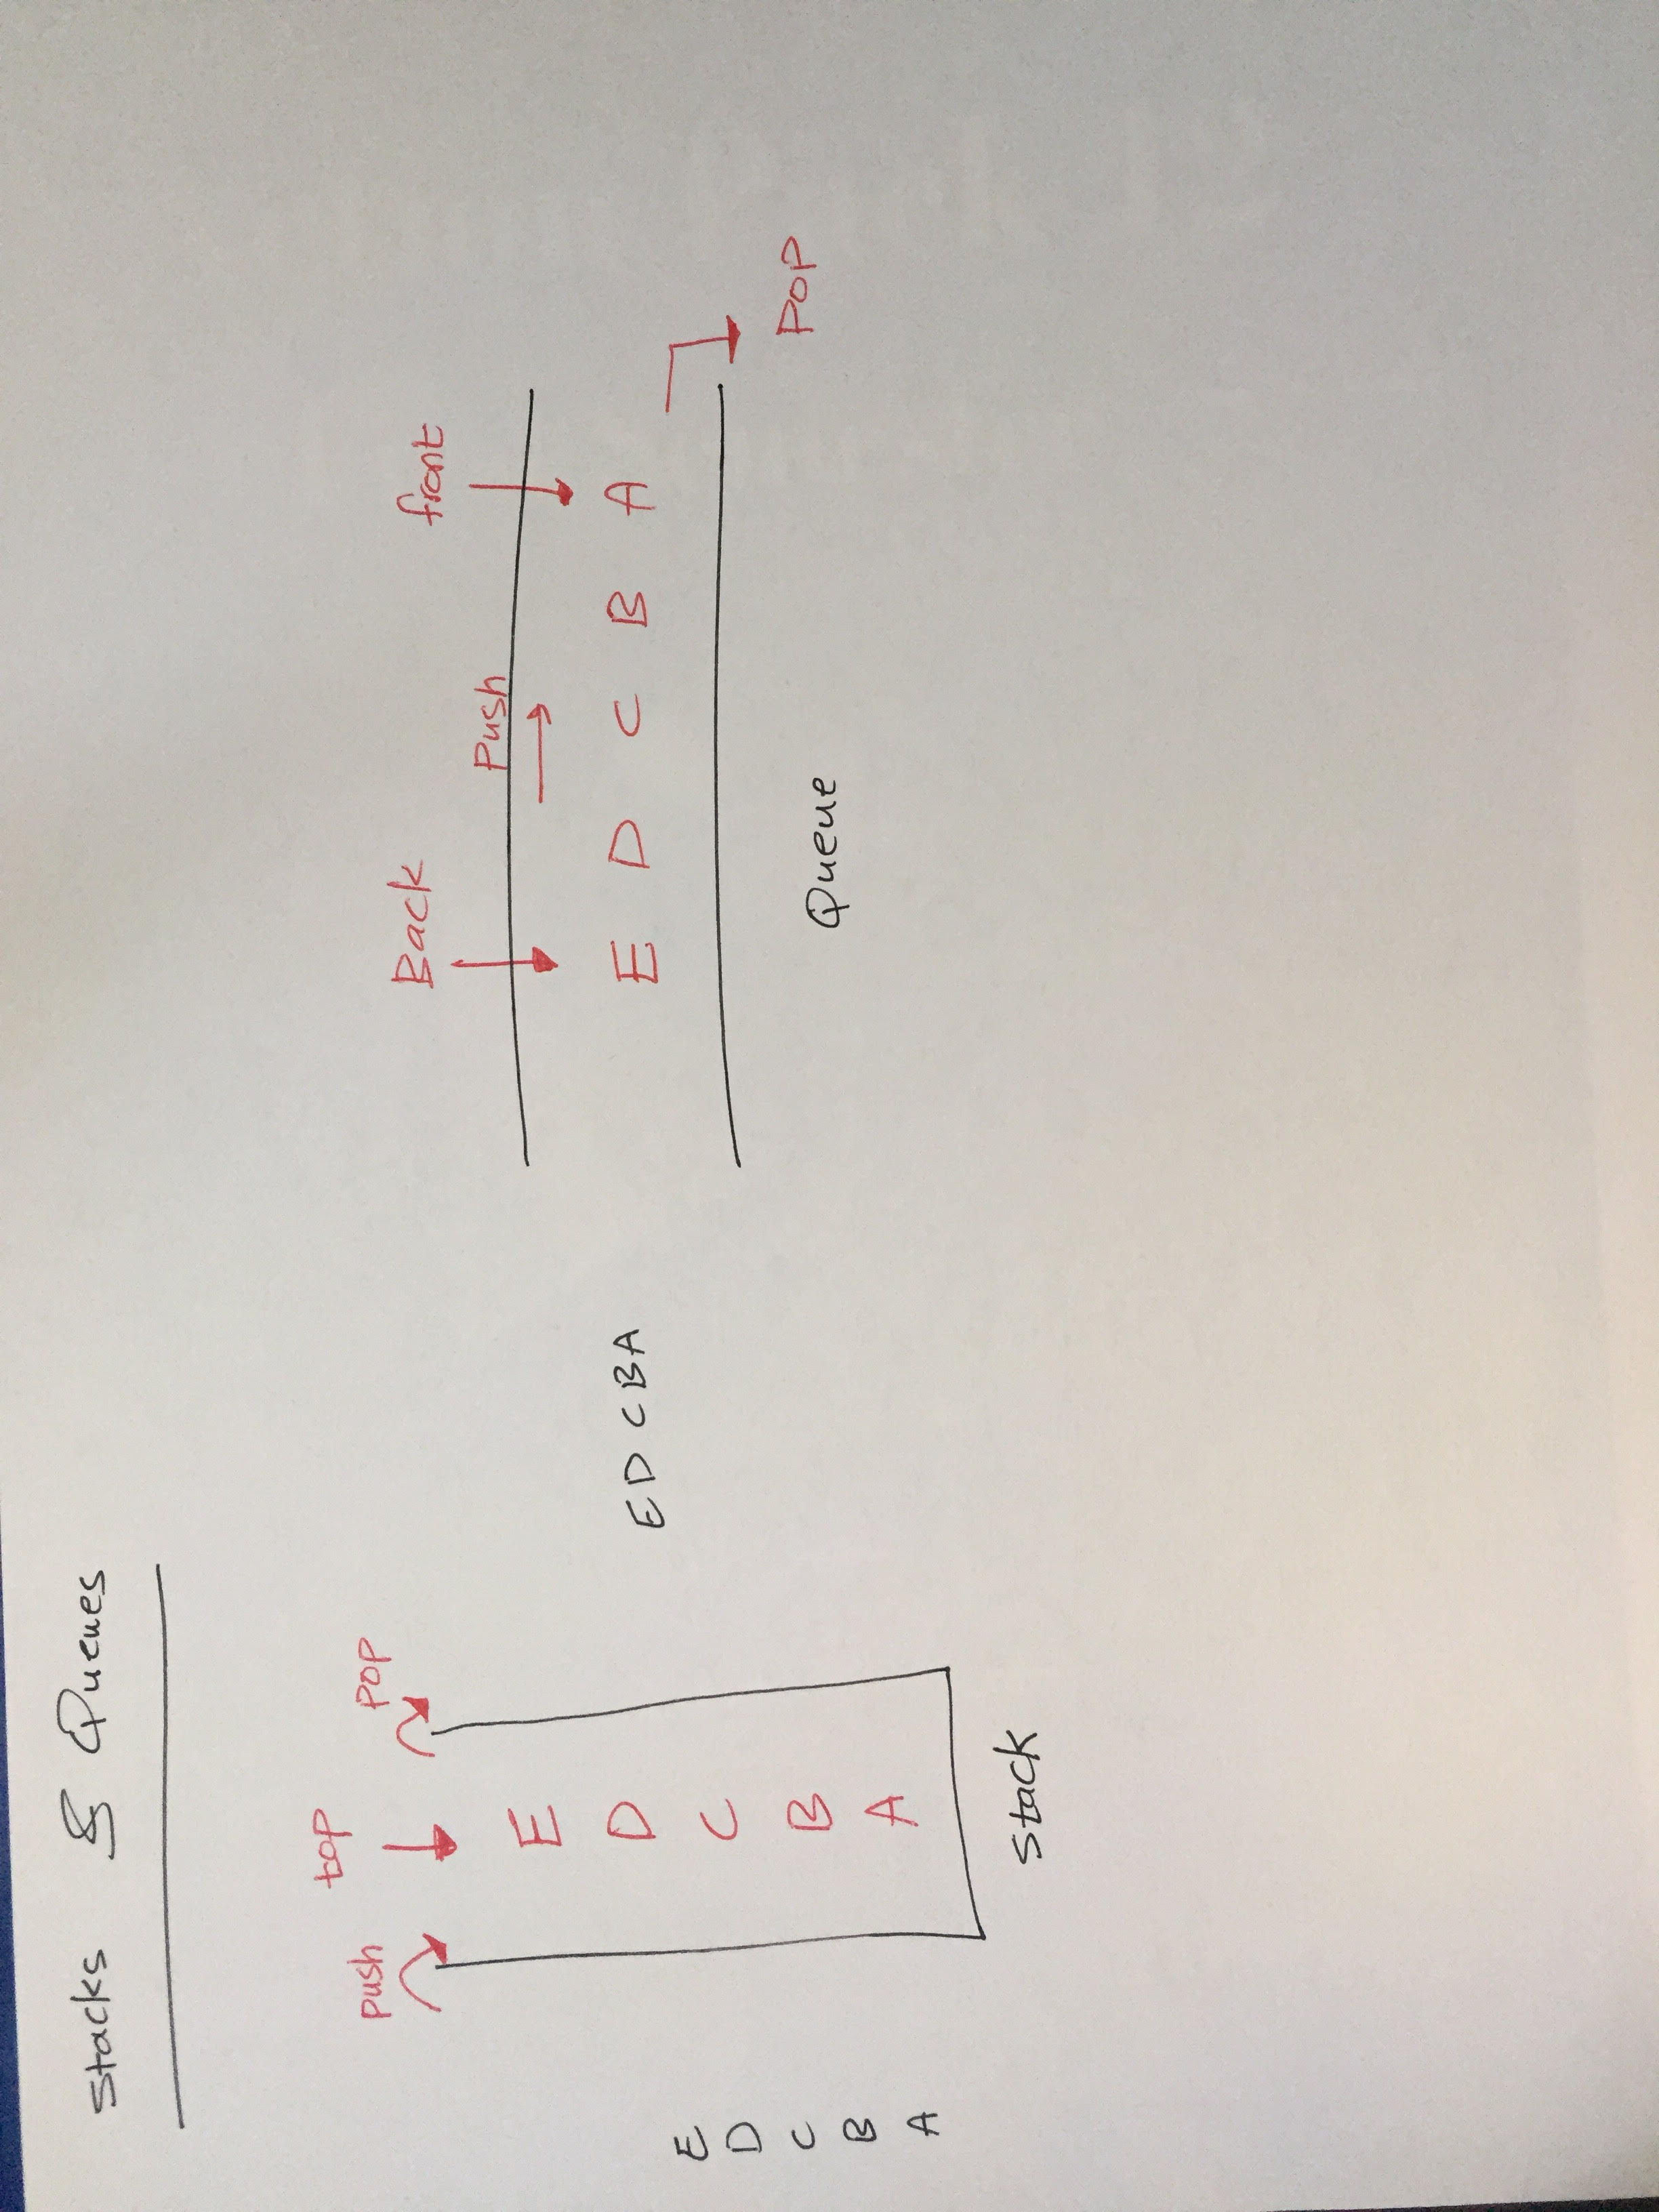 Stacks & Queues
push
top
pop
E
D
C
B
A
Stack
E
D
C
B
A
E D C B A
Back
Push
front
E D C B A
Pop
Queue